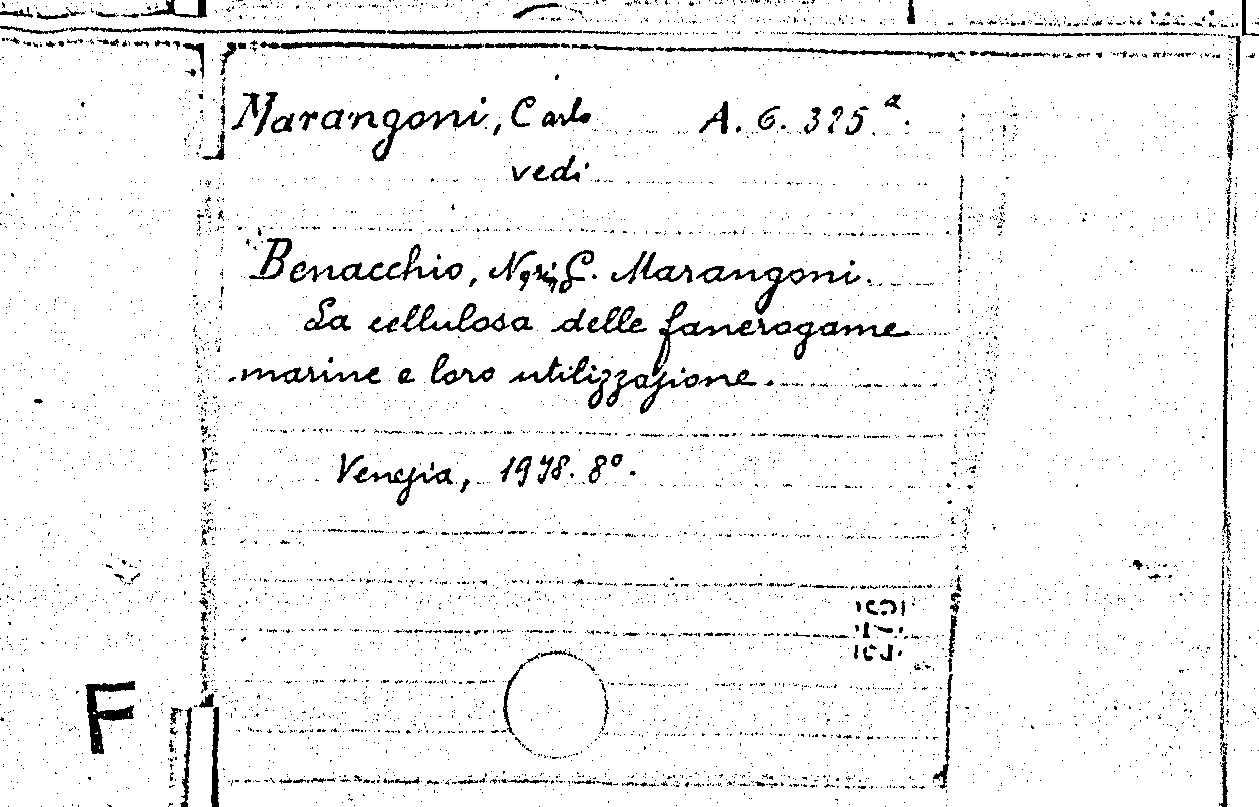 Marangoni, Carlo A. 6. 325ª.
vedi
Benacchio, C. Marangoni.
La cellulosa delle fanerogame
marine e loro utilizzazione.
Venezia, 8º.
F